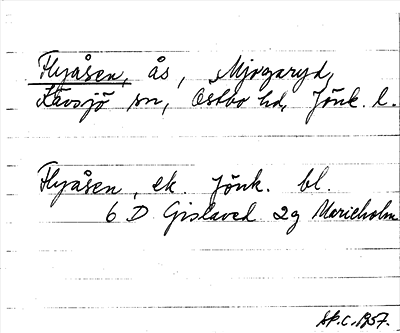 Flyåsen, ås, Mjogaryd,
Kävsjö sn, Östbo hd, Jönk. l.
Flyåsen, ek. Jönk. bl.
6 D Gislaved 2g Marieholm
Sk.c. 1957.